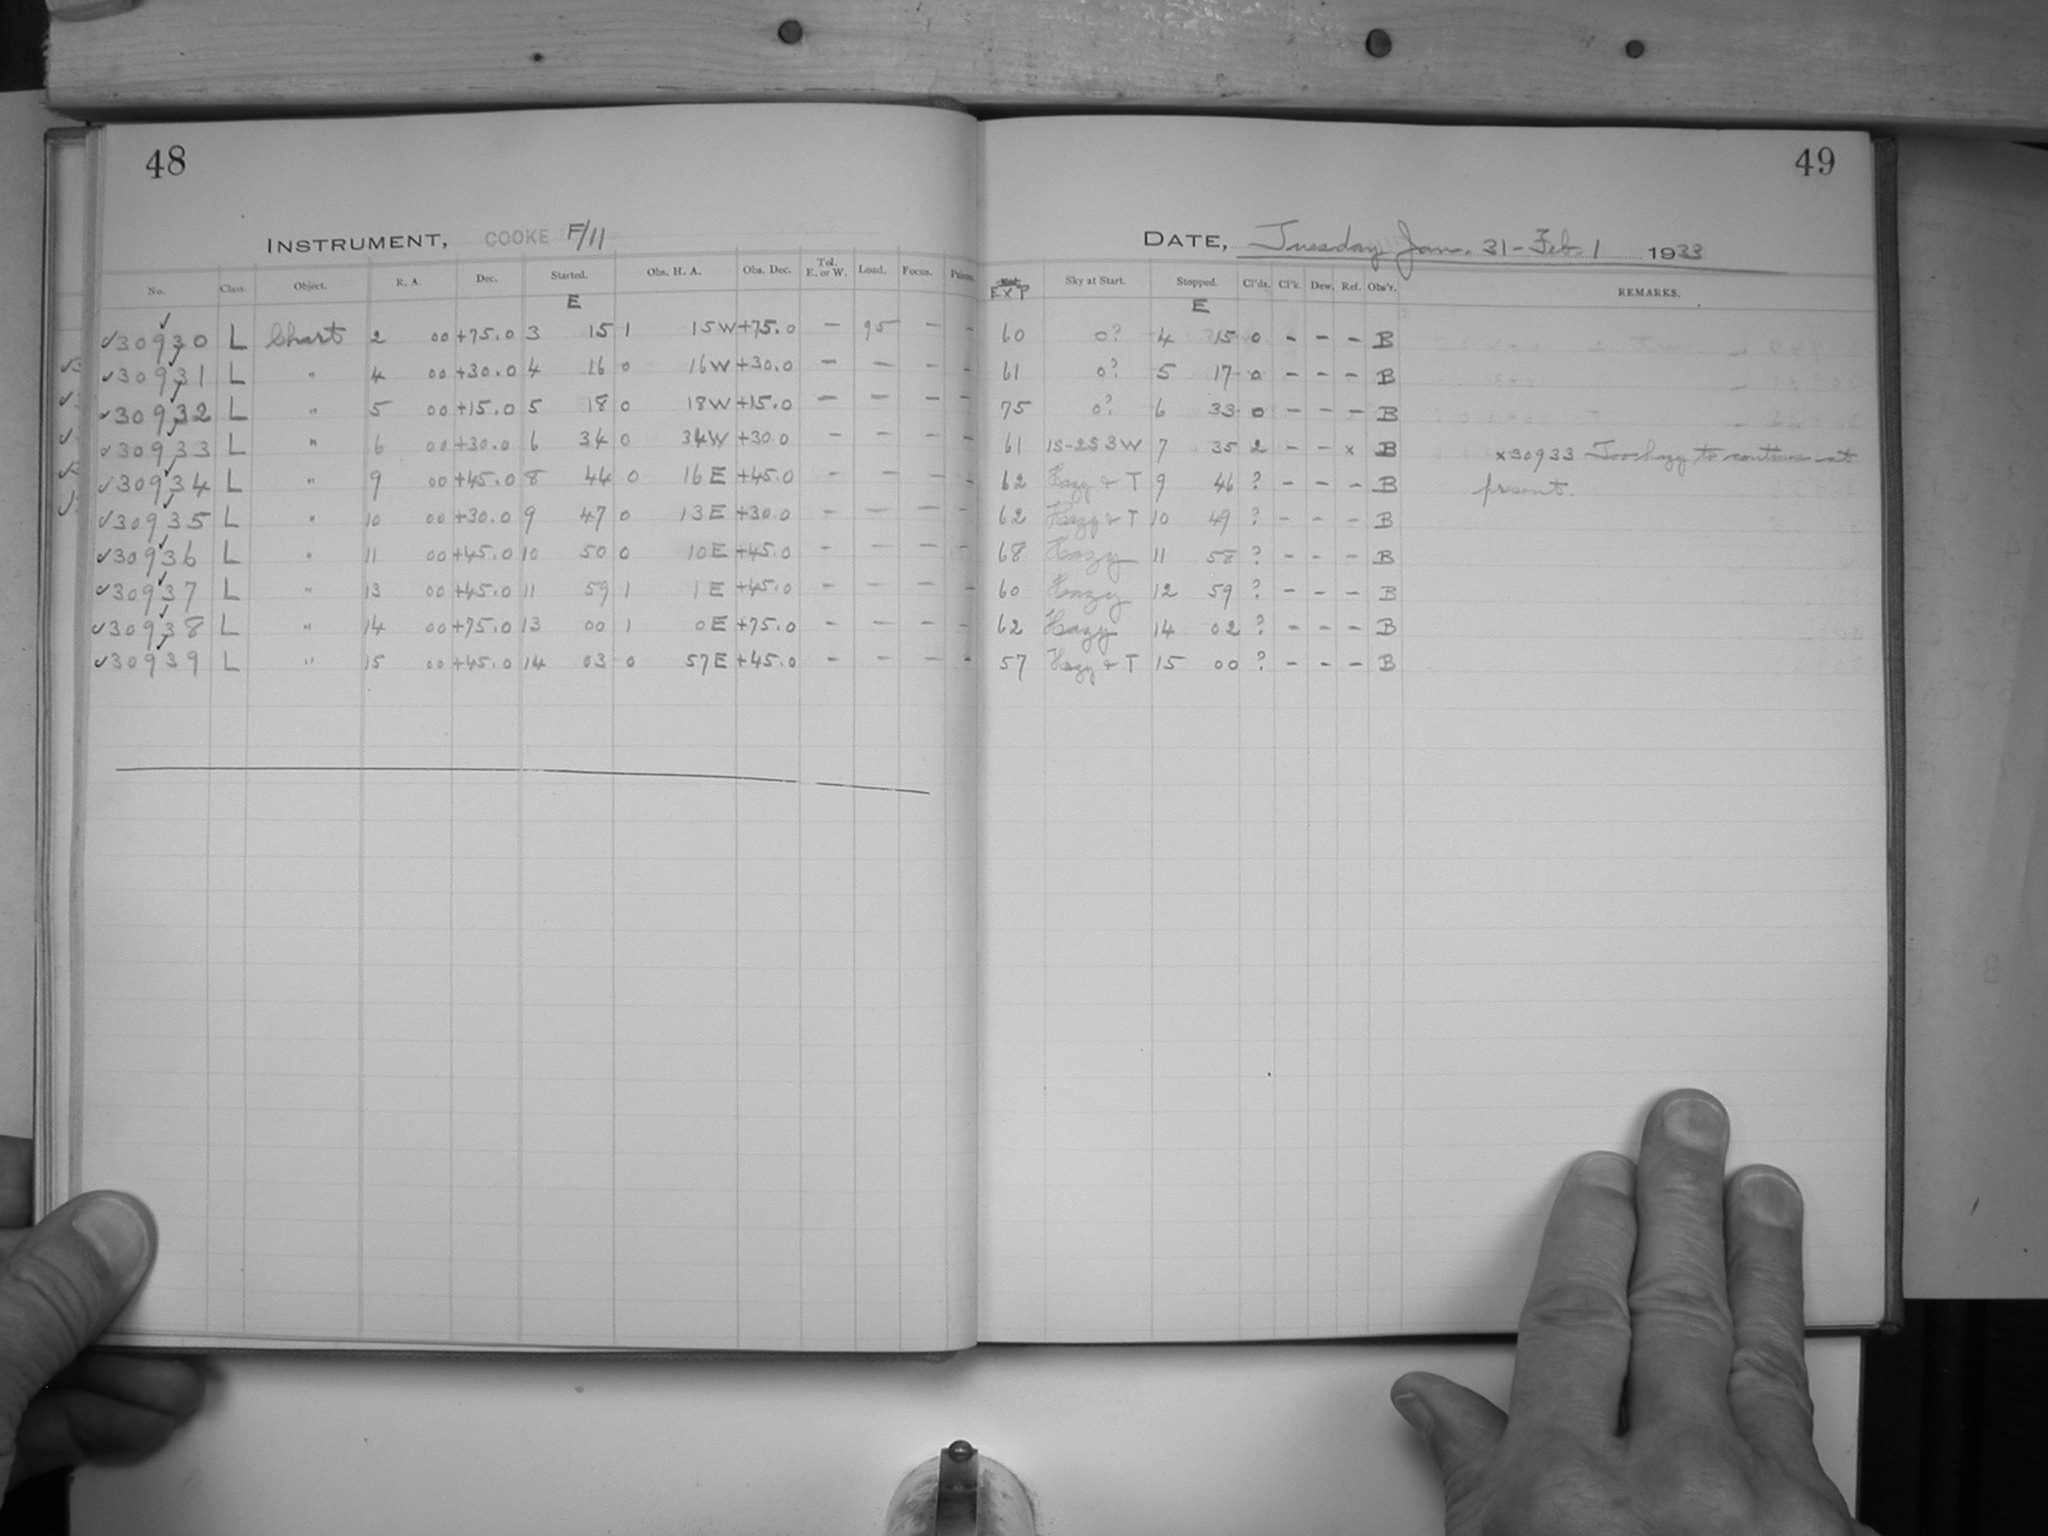 48
INSTRUMENT, COOKE F/11
No. Class. Object. R. A. Dec. Started. Obs. H. A. Obs. Dec. Tel. E. or W. Load. Focus.
E
✓30930 L Chart 2 00 +75.0 3 15 1 15W +75.0 – 95 – –
✓30931 L " 4 00 +30.0 4 16 0 16W +30.0 – – – –
✓30932 L " 5 00 +15.0 5 18 0 18W +15.0 – – – –
✓30933 L " 6 00 +30.0 6 34 0 34W +30.0 – – – –
✓30934 L " 9 00 +45.0 8 44 0 16E +45.0 – – – –
✓30935 L " 10 00 +30.0 9 47 0 13E +30.0 – – – –
✓30936 L " 11 00 +45.0 10 50 0 10E +45.0 – – – –
✓30937 L " 13 00 +45.0 11 59 1 1E +45.0 – – – –
✓30938 L " 14 00 +75.0 13 00 1 0E +75.0 – – – –
✓30939 L " 15 00 +45.0 14 03 0 57E +45.0 – – – –
49
DATE, Tuesday Jan. 31 - Feb. 1 1933
EXP Sky at Start. Stopped. Cl'ds. Cl'k. Dew. Ref. Obs'r. REMARKS.
E
60 0? 4 15 0 – – – B
61 0? 5 17 0 – – – B
75 0? 6 33 0 – – – B
61 1S-2S3W 7 35 2 – – x B x30933 Too hazy to continue at
62 Hazy & T 9 46 ? – – – B present.
62 Hazy & T 10 49 ? – – – B
68 Hazy 11 58 ? – – – B
60 Hazy 12 59 ? – – – B
62 Hazy 14 02 ? – – – B
57 Hazy & T 15 00 ? – – – B